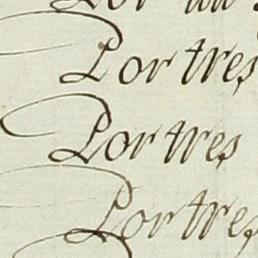 Por tres
Por tres
Por tres